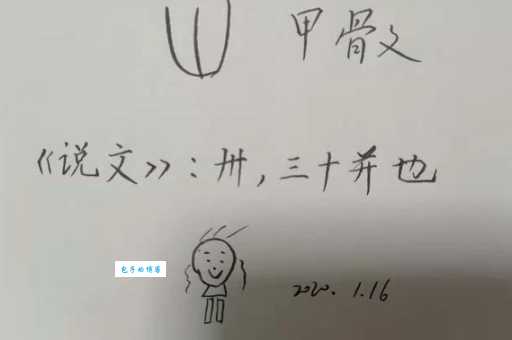 甲骨文
《说文》：卅，三十并也
包子的博客
2020. 1.16